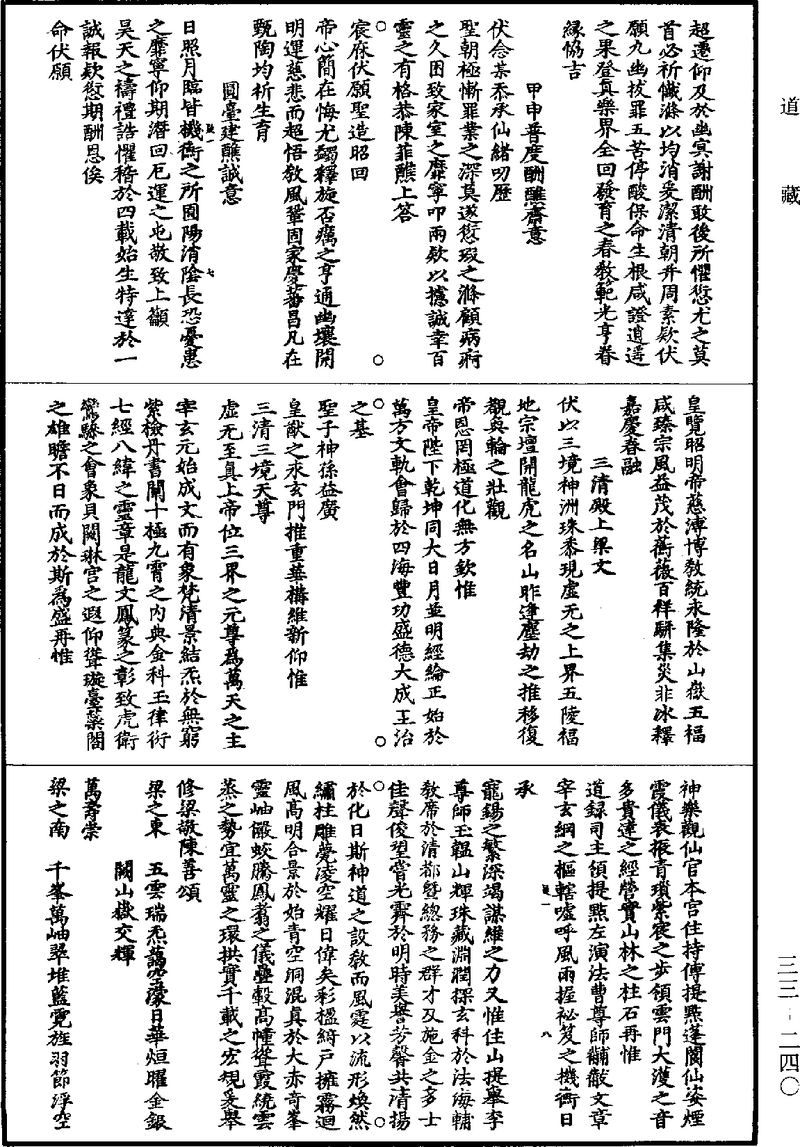 道藏
三三-二四〇
超遷仰及於幽冥謝酬敢後所懼愆尤之莫
首必祈懺滌以均消爰潔清朝卉周素欵伏
願九幽拔罪五苦停酸保命生根咸證逍遥
之果登真樂界全回發育之春教範光亨眷
緣恊吉
甲申普度酬醮齋意
伏念某忝承仙緒叨歷
聖朝極慚罪業之深莫遂愆瑕之滌顧病痾
之久困致家室之靡寧叩兩欵以攄誠幸百
靈之有格恭陳菲醮上答
宸庥伏願聖造昭回
帝心簡在悔尤蠲釋旋否癘之亨通幽壤開
明運慈悲而超悟教風鞏固家慶蕃昌凡在
甄陶均祈生育
圓臺建醮誠意
日照月臨皆機衡之所囿陽消陰長恐憂患
之靡寧仰期潛回厄運之屯敬致上籲
昊天之禱禮誥懼稽於四載始生特達於一
誠報欵愆期酬恩俟
命伏願
皇覽昭明帝慈溥博教統永隆於山嶽五福
咸臻宗風益茂於蘅薇百祥駢集災非冰釋
嘉慶春融
三清殿上梁文
伏以三境神洲珠黍現虛无之上界五陵福
地宗壇開龍虎之名山昨逢塵劫之推移復
觀奐輪之壯觀
帝恩罔極道化無方欽惟
皇帝陛下乾坤同大日月並明經綸正始於
萬方文軌會歸於四海豐功盛德大成王治
之基
聖子神孫益廣
皇猷之永玄門推重華構維新仰惟
三清三境天尊
虛无至真上帝位三界之元尊為萬天之主
宰玄元始成文而有象梵清景結炁於無窮
紫檢丹書闡十極九霄之内典金科玉律衍
七經八緯之靈章是龍文鳳篆之彰致虎衛
鸞驂之會象貝闕琳宫之遐仰聳璇臺蘂閣
之雄瞻不日而成於斯為盛再惟
神樂觀仙官本宫住持傅提㸃蓬閬仙姿煙
霞儀表掖青瑣紫宸之步領雲門大濩之音
多貴達之經營實山林之柱石再惟
道録司主領提㸃左演法曹尊師黼黻文章
宰玄綱之樞轄噓呼風雨握祕笈之機衡日
承
寵錫之繁深竭謀維之力又惟住山提舉李
尊師玉韞山輝珠藏淵潤探玄科於法海輔
教席於清都曁總務之群才及施金之多士
佳聲俊望嘗光霽於明時美譽芳馨共清揚
於化日斯神道之設教而風霆以流形煥然
繡柱雕甍凌空耀日偉矣彩楹綺戶擁霧迴
風高明合景於始青空洞混真於大赤奇峯
靈岫嚴蛟騰鳳翥之儀疊轂高幢聳霞繞雲
蒸之勢宜萬靈之環拱實千載之宏規爰舉
修梁敬陳善頌
梁之東　五雲瑞炁藹空濛日華烜曜金銀
闕山嶽交輝
萬壽崇
梁之南　千峯萬岫翠堆藍霓旌羽節浮空